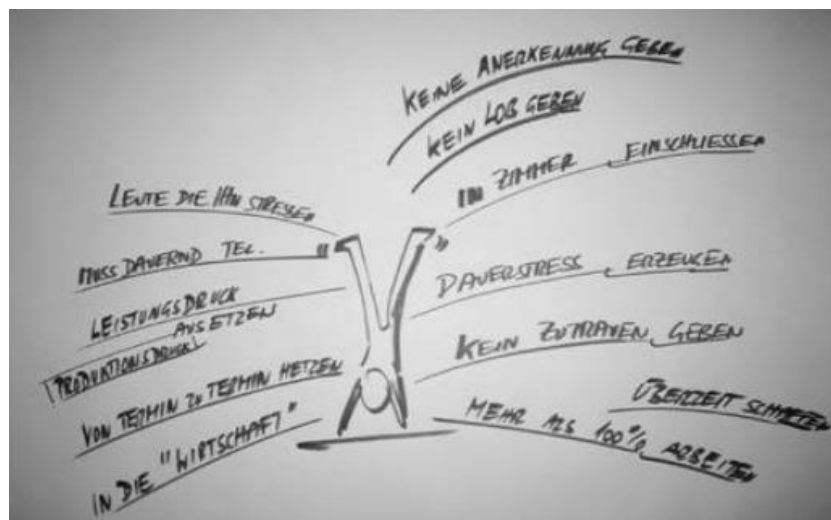 KEINE ANERKENNUNG GEBEN
KEIN LOB GEBEN
IN ZIMMER EINSCHLIESSEN
DAUERSTRESS ERZEUGEN
KEIN ZUTRAUEN GEBEN
ÜBERZEIT
MEHR ALS 100% ARBEITEN
LEUTE DIE IHN STRESSEN
MUSS DAUERND TEL.
LEISTUNGSDRUCK
AUSETZEN
PRODUKTIONSDRUCK
VON TERMIN ZU TERMIN HETZEN
IN DIE "WIRTSCHAFT"